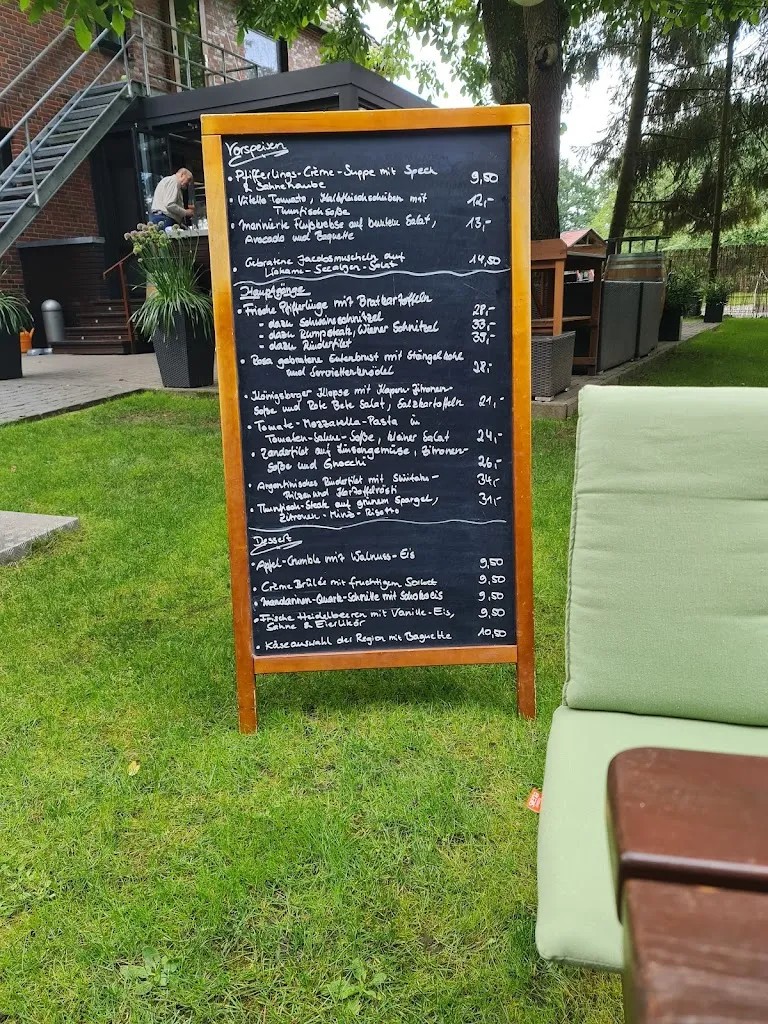 Vorspeisen
• Pfifferlings-Crème-Suppe mit Speck 9,50
& Sahnehaube
• Vitello Tomato, Kalbfleischscheiben mit 12,-
Thunfischsoße
• Marinierte Flußkrebse auf buntem Salat, 13,-
Avocado und Baguette
• Gebratene Jacobsmuscheln auf 14,50
Limonen-Seealgen-Salat
Hauptgänge
• Frische Pfifferlinge mit Bratkartoffeln 28,-
- dazu Schweineschnitzel 33,-
- dazu Rumpsteak, Wiener Schnitzel
- dazu Rinderfilet 39,-
• Rosa gebratene Entenbrust mit Stängelkohl
und Serviettenknödel 28,-
• Königsberger Klopse mit Kapern-Zitronen-
Soße und Rote Bete Salat, Salzkartoffeln 21,-
• Tomate-Mozzarella-Pasta in
Tomaten-Sahne-Soße, kleiner Salat 24,-
• Zanderfilet auf Linsengemüse, Zitronen-
Soße und Gnocchi 26,-
• Argentinisches Rinderfilet mit Shiitake- 34,-
Pilzen und Kartoffelrösti
• Thunfisch-Steak auf grünem Spargel, 31,-
Zitronen-Minz-Risotto
Dessert
• Apfel-Crumble mit Walnuss-Eis 9,50
• Crème Brûlée mit fruchtigem Sorbet 9,50
• Mandarinen-Quark-Schnitte mit Schokoeis 9,50
• Frische Heidelbeeren mit Vanille-Eis, 9,50
Sahne & Eierlikör
• Käseauswahl der Region mit Baguette 10,50